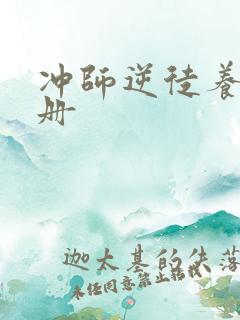 冲師逆徒养
册
迦太基的失落
未经同意禁止转载